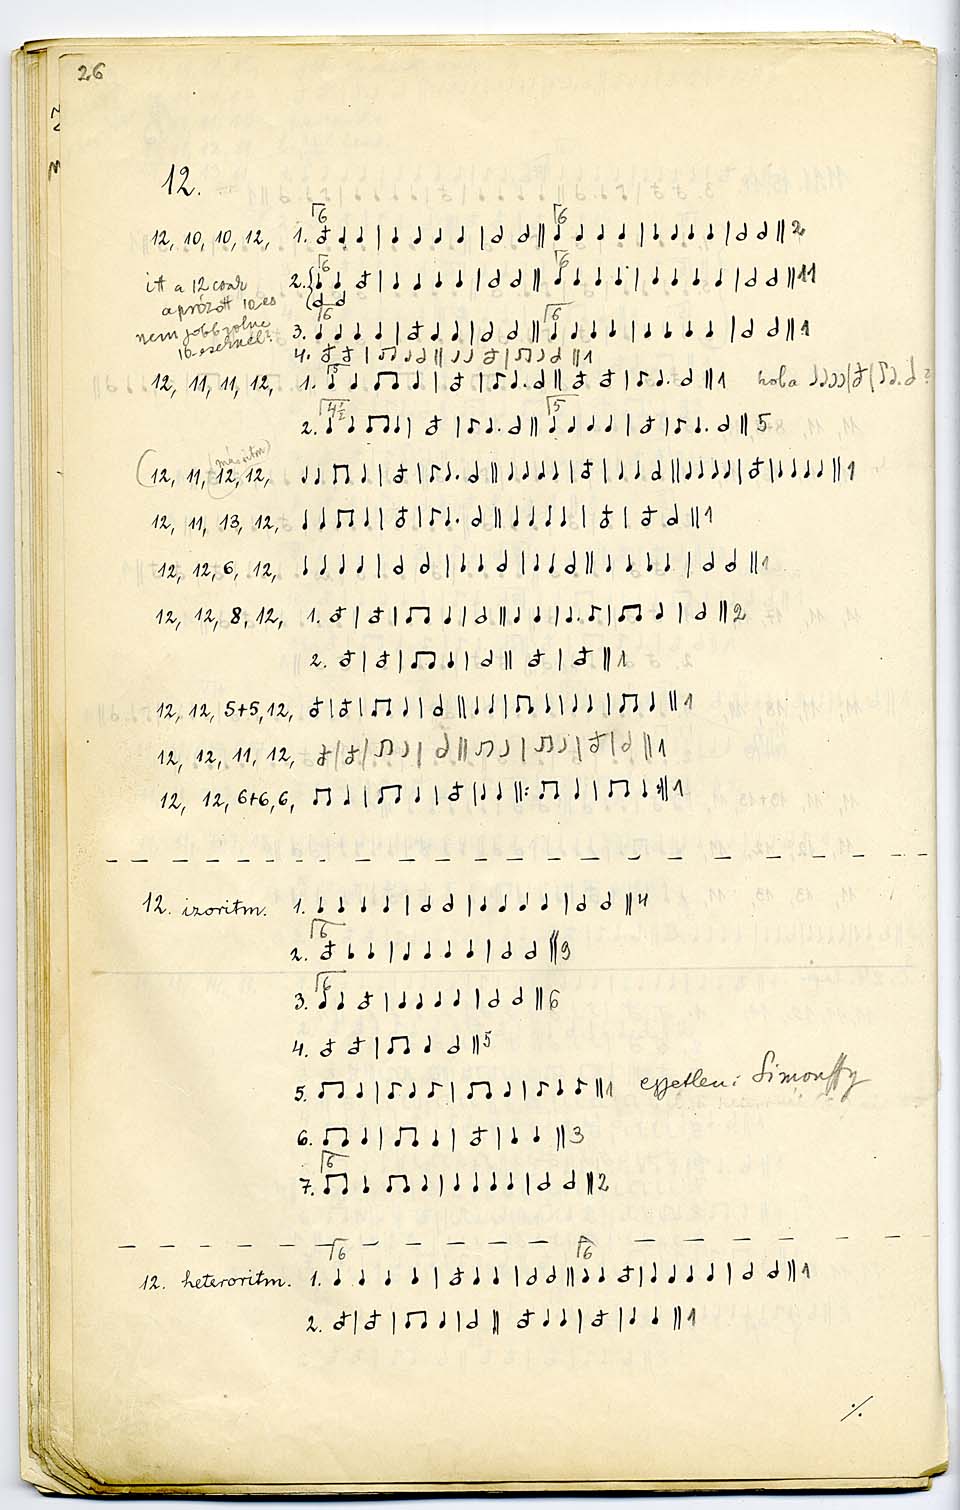 26
12.
12, 10, 10, 12, 1. 2
itt a 12 csak 2. 11
aprózott 10-es
nem jobb volna 3. 1
10-esknél? 4. 1
12, 11, 11, 12, 1. 1 hol a ?
2. 5
(12, 11, 12, 12, 1
12, 11, 13, 12, 1
12, 12, 6, 12, 1
12, 12, 8, 12, 1. 2
2. 1
12, 12, 5+5, 12, 1
12, 12, 11, 12, 1
12, 12, 6+6, 6, 1
12. izoritm. 1. 4
2. 9
3. 6
4. 5
5. 1 egyetlen: Simonffy
6. 3
7. 2
12. heteroritm. 1. 1
2. 1
./.